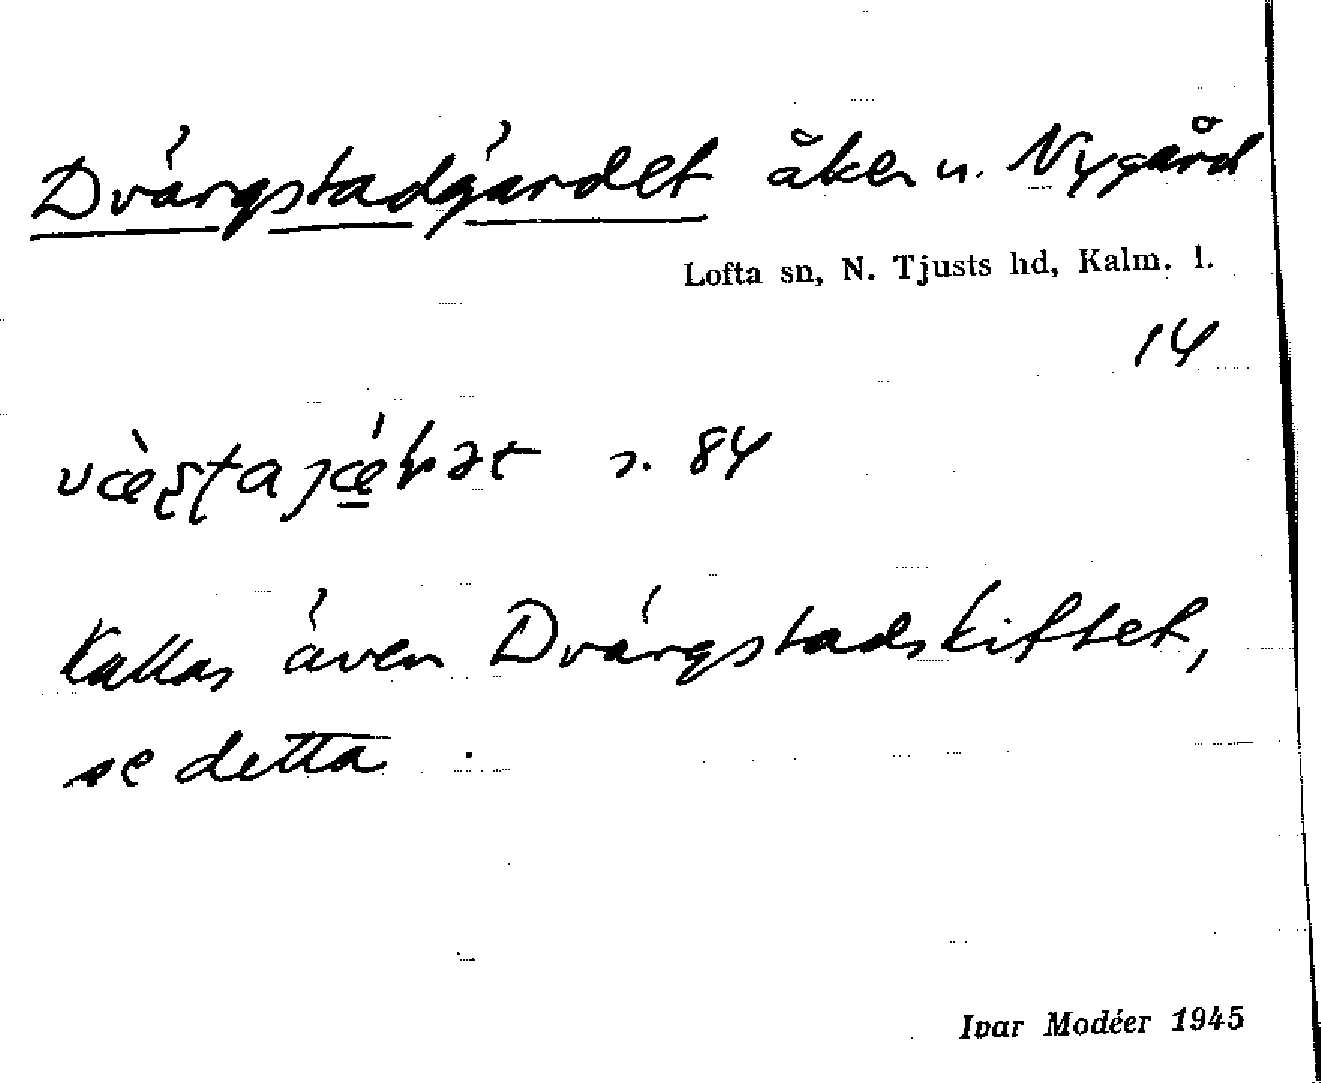 Dvärgstadgärdet åker u. Nygård
Lofta sn, N. Tjusts hd, Kalm. l.
14
s. 84
Kallas även Dvärgstadskiftet,
se detta.
Ivar Modéer 1945